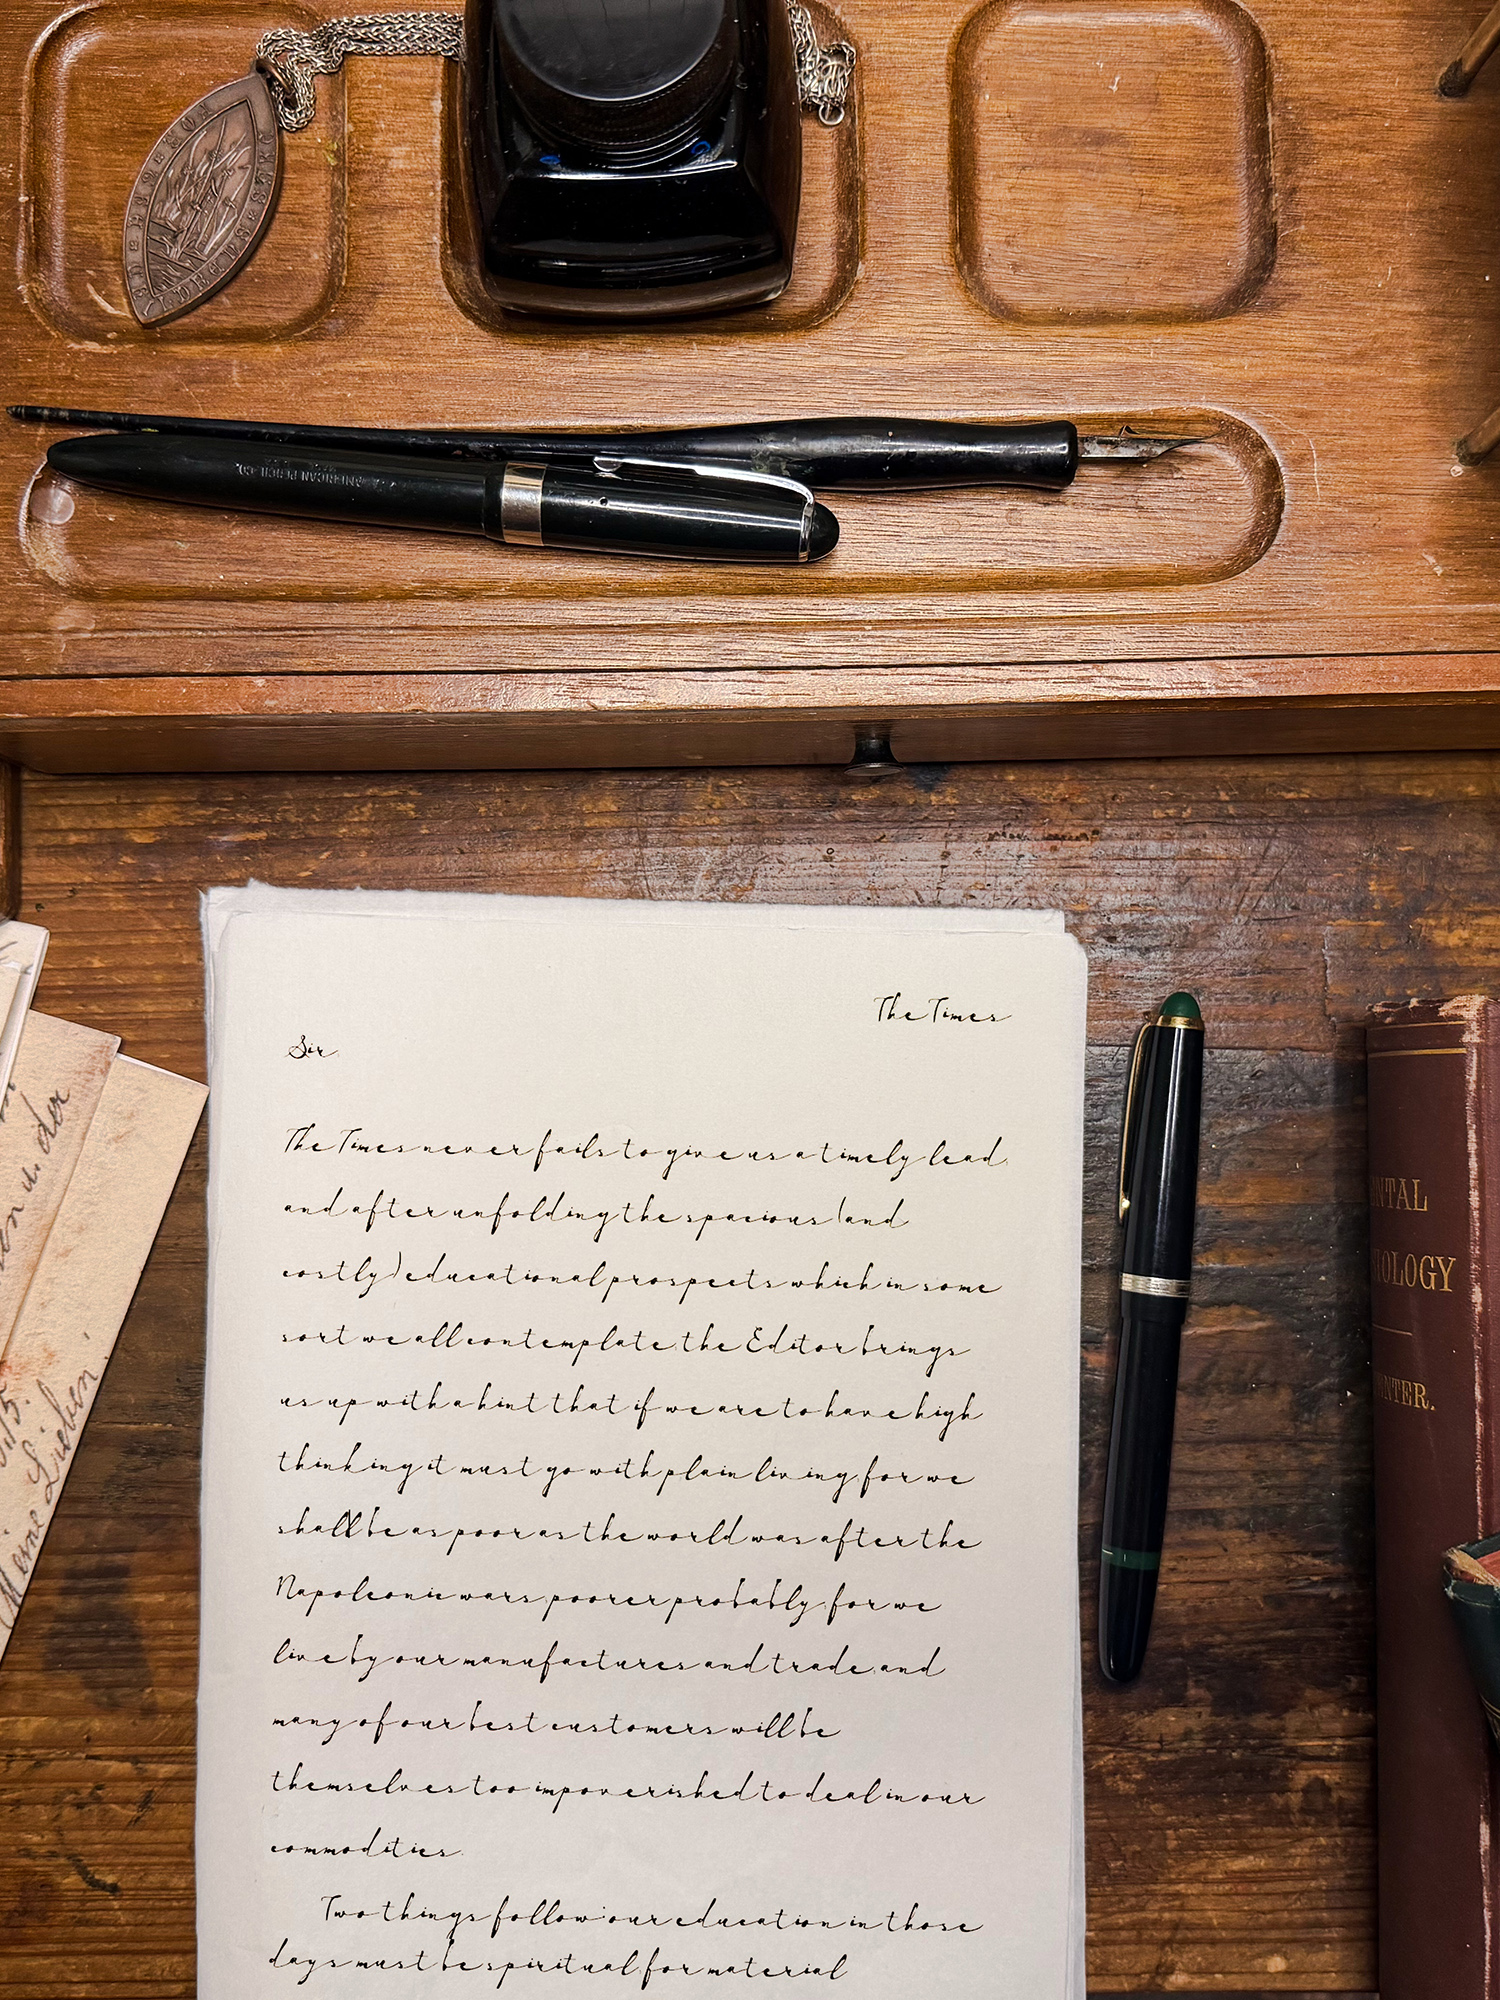 AMERICAN PENCIL CO.
The Times
Sir
The Times never fails to give us a timely lead
and after unfolding the spacious (and
costly) educational prospects which in some
sort we all contemplate, the Editor brings
us up with a hint that if we are to have high
thinking it must go with plain living, for we
shall be as poor as the world was after the
Napoleonic wars, poorer probably, for we
live by our manufactures and trade, and
many of our best customers will be
themselves too impoverished to deal in our
commodities.
Two things follow: our education in those
days must be spiritual, for material
u. der
Meine Lieben!
NTAL
OLOGY
NTER.